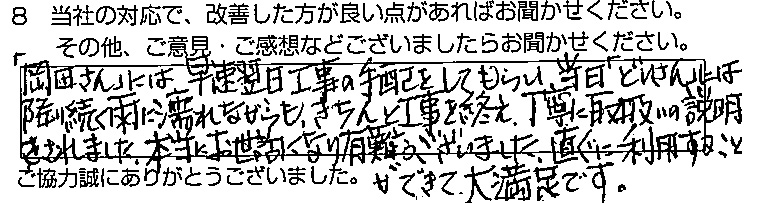 8 当社の対応で、改善した方が良い点があればお聞かせください。
その他、ご意見・ご感想などございましたらお聞かせください。
「岡田さん」には、早速翌日工事の手配をしてもらい、当日「どいさん」には
降り続く雨に濡れながらも、きちんと工事を終え、丁寧に取扱いの説明
をされました。本当にお世話になり有難うございました。直ぐに利用すること
ができて、大満足です。
ご協力誠にありがとうございました。